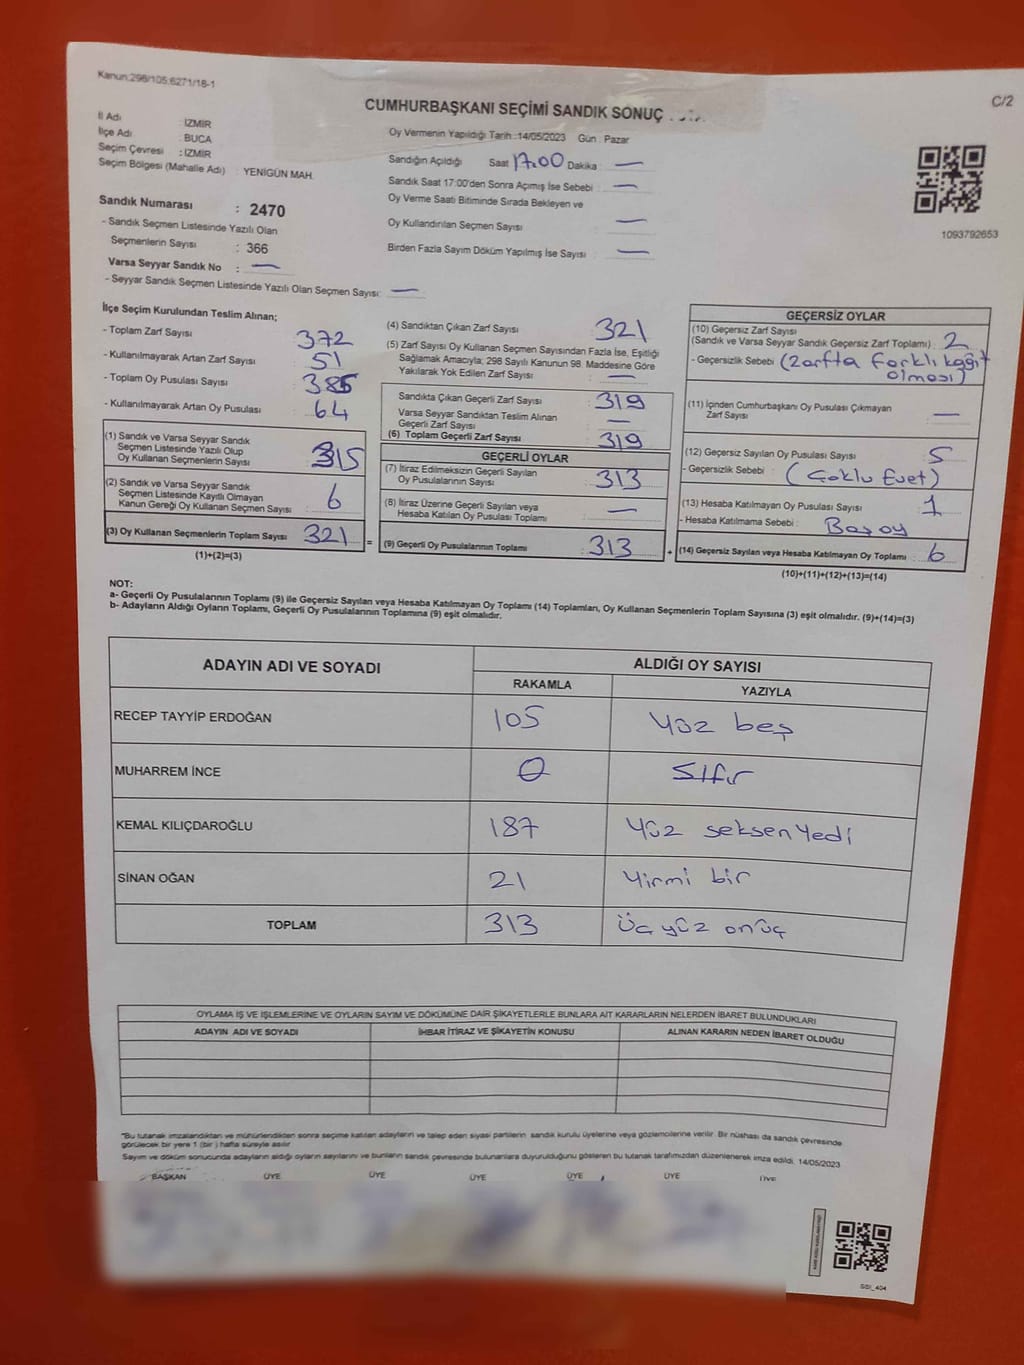 Kanun:298/105;6271/18-1
C/2
CUMHURBAŞKANI SEÇİMİ SANDIK SONUÇ
İl Adı : İZMİR
İlçe Adı : BUCA
Seçim Çevresi : İZMİR
Seçim Bölgesi (Mahalle Adı) : YENİGÜN MAH.
Oy Vermenin Yapıldığı Tarih :14/05/2023 Gün : Pazar
Sandığın Açıldığı Saat 17.00 Dakika : —
Sandık Saat 17:00'den Sonra Açımış İse Sebebi : —
Oy Verme Saati Bitiminde Sırada Bekleyen ve
Oy Kullandırılan Seçmen Sayısı : —
Birden Fazla Sayım Döküm Yapılmış İse Sayısı : —
1093792653
Sandık Numarası : 2470
- Sandık Seçmen Listesinde Yazılı Olan
Seçmenlerin Sayısı : 366
Varsa Seyyar Sandık No : —
- Seyyar Sandık Seçmen Listesinde Yazılı Olan Seçmen Sayısı: —
İlçe Seçim Kurulundan Teslim Alınan;
- Toplam Zarf Sayısı : 372
- Kullanılmayarak Artan Zarf Sayısı : 51
- Toplam Oy Pusulası Sayısı : 385
- Kullanılmayarak Artan Oy Pusulası : 64
(1) Sandık ve Varsa Seyyar Sandık
Seçmen Listesinde Yazılı Olup
Oy Kullanan Seçmenlerin Sayısı : 315
(2) Sandık ve Varsa Seyyar Sandık
Seçmen Listesinde Kayıtlı Olmayan
Kanun Gereği Oy Kullanan Seçmen Sayısı : 6
(3) Oy Kullanan Seçmenlerin Toplam Sayısı : 321 =
(1)+(2)=(3)
(4) Sandıktan Çıkan Zarf Sayısı : 321
(5) Zarf Sayısı Oy Kullanan Seçmen Sayısından Fazla İse, Eşitliği
Sağlamak Amacıyla; 298 Sayılı Kanunun 98. Maddesine Göre
Yakılarak Yok Edilen Zarf Sayısı : —
Sandıkta Çıkan Geçerli Zarf Sayısı : 319
Varsa Seyyar Sandıktan Teslim Alınan
Geçerli Zarf Sayısı : —
(6) Toplam Geçerli Zarf Sayısı : 319
GEÇERLİ OYLAR
(7) İtiraz Edilmeksizin Geçerli Sayılan
Oy Pusulalarının Sayısı : 313
(8) İtiraz Üzerine Geçerli Sayılan veya
Hesaba Katılan Oy Pusulası Toplamı : —
(9) Geçerli Oy Pusulalarının Toplamı : 313 +
GEÇERSİZ OYLAR
(10) Geçersiz Zarf Sayısı
(Sandık ve Varsa Seyyar Sandık Geçersiz Zarf Toplamı) : 2
- Geçersizlik Sebebi : (Zarfta farklı kağıt
olması)
(11) İçinden Cumhurbaşkanı Oy Pusulası Çıkmayan
Zarf Sayısı : —
(12) Geçersiz Sayılan Oy Pusulası Sayısı : 5
- Geçersizlik Sebebi : (Çoklu Evet)
(13) Hesaba Katılmayan Oy Pusulası Sayısı : 1
- Hesaba Katılmama Sebebi : Boş oy
(14) Geçersiz Sayılan veya Hesaba Katılmayan Oy Toplamı : 6
(10)+(11)+(12)+(13)=(14)
NOT:
a- Geçerli Oy Pusulalarının Toplamı (9) ile Geçersiz Sayılan veya Hesaba Katılmayan Oy Toplamı (14) Toplamları, Oy Kullanan Seçmenlerin Toplam Sayısına (3) eşit olmalıdır. (9)+(14)=(3)
b- Adayların Aldığı Oyların Toplamı, Geçerli Oy Pusulalarının Toplamına (9) eşit olmalıdır.
ADAYIN ADI VE SOYADI ALDIĞI OY SAYISI
RAKAMLA YAZIYLA
RECEP TAYYİP ERDOĞAN 105 Yüz beş
MUHARREM İNCE 0 Sıfır
KEMAL KILIÇDAROĞLU 187 Yüz seksen Yedi
SİNAN OĞAN 21 Yirmi bir
TOPLAM 313 Üç yüz onüç
OYLAMA İŞ VE İŞLEMLERİNE VE OYLARIN SAYIM VE DÖKÜMÜNE DAİR ŞİKAYETLERLE BUNLARA AİT KARARLARIN NELERDEN İBARET BULUNDUKLARI
ADAYIN ADI VE SOYADI İHBAR İTİRAZ VE ŞİKAYETİN KONUSU ALINAN KARARIN NEDEN İBARET OLDUĞU
"Bu tutanak imzalandıktan ve mühürlendikten sonra seçime katılan adayların ve talep eden siyasi partilerin sandık kurulu üyelerine veya gözlemcilerine verilir. Bir nüshası da sandık çevresinde
görülecek bir yere 1 (bir ) hafta süreyle asılır
Sayım ve döküm sonucunda adayların aldığı oyların sayılarını ve bunların sandık çevresinde bulunanlara duyurulduğunu gösteren bu tutanak tarafımızdan düzenlenerek imza edildi. 14/05/2023
BAŞKAN ÜYE ÜYE ÜYE ÜYE ÜYE ÜYE
SSI_404